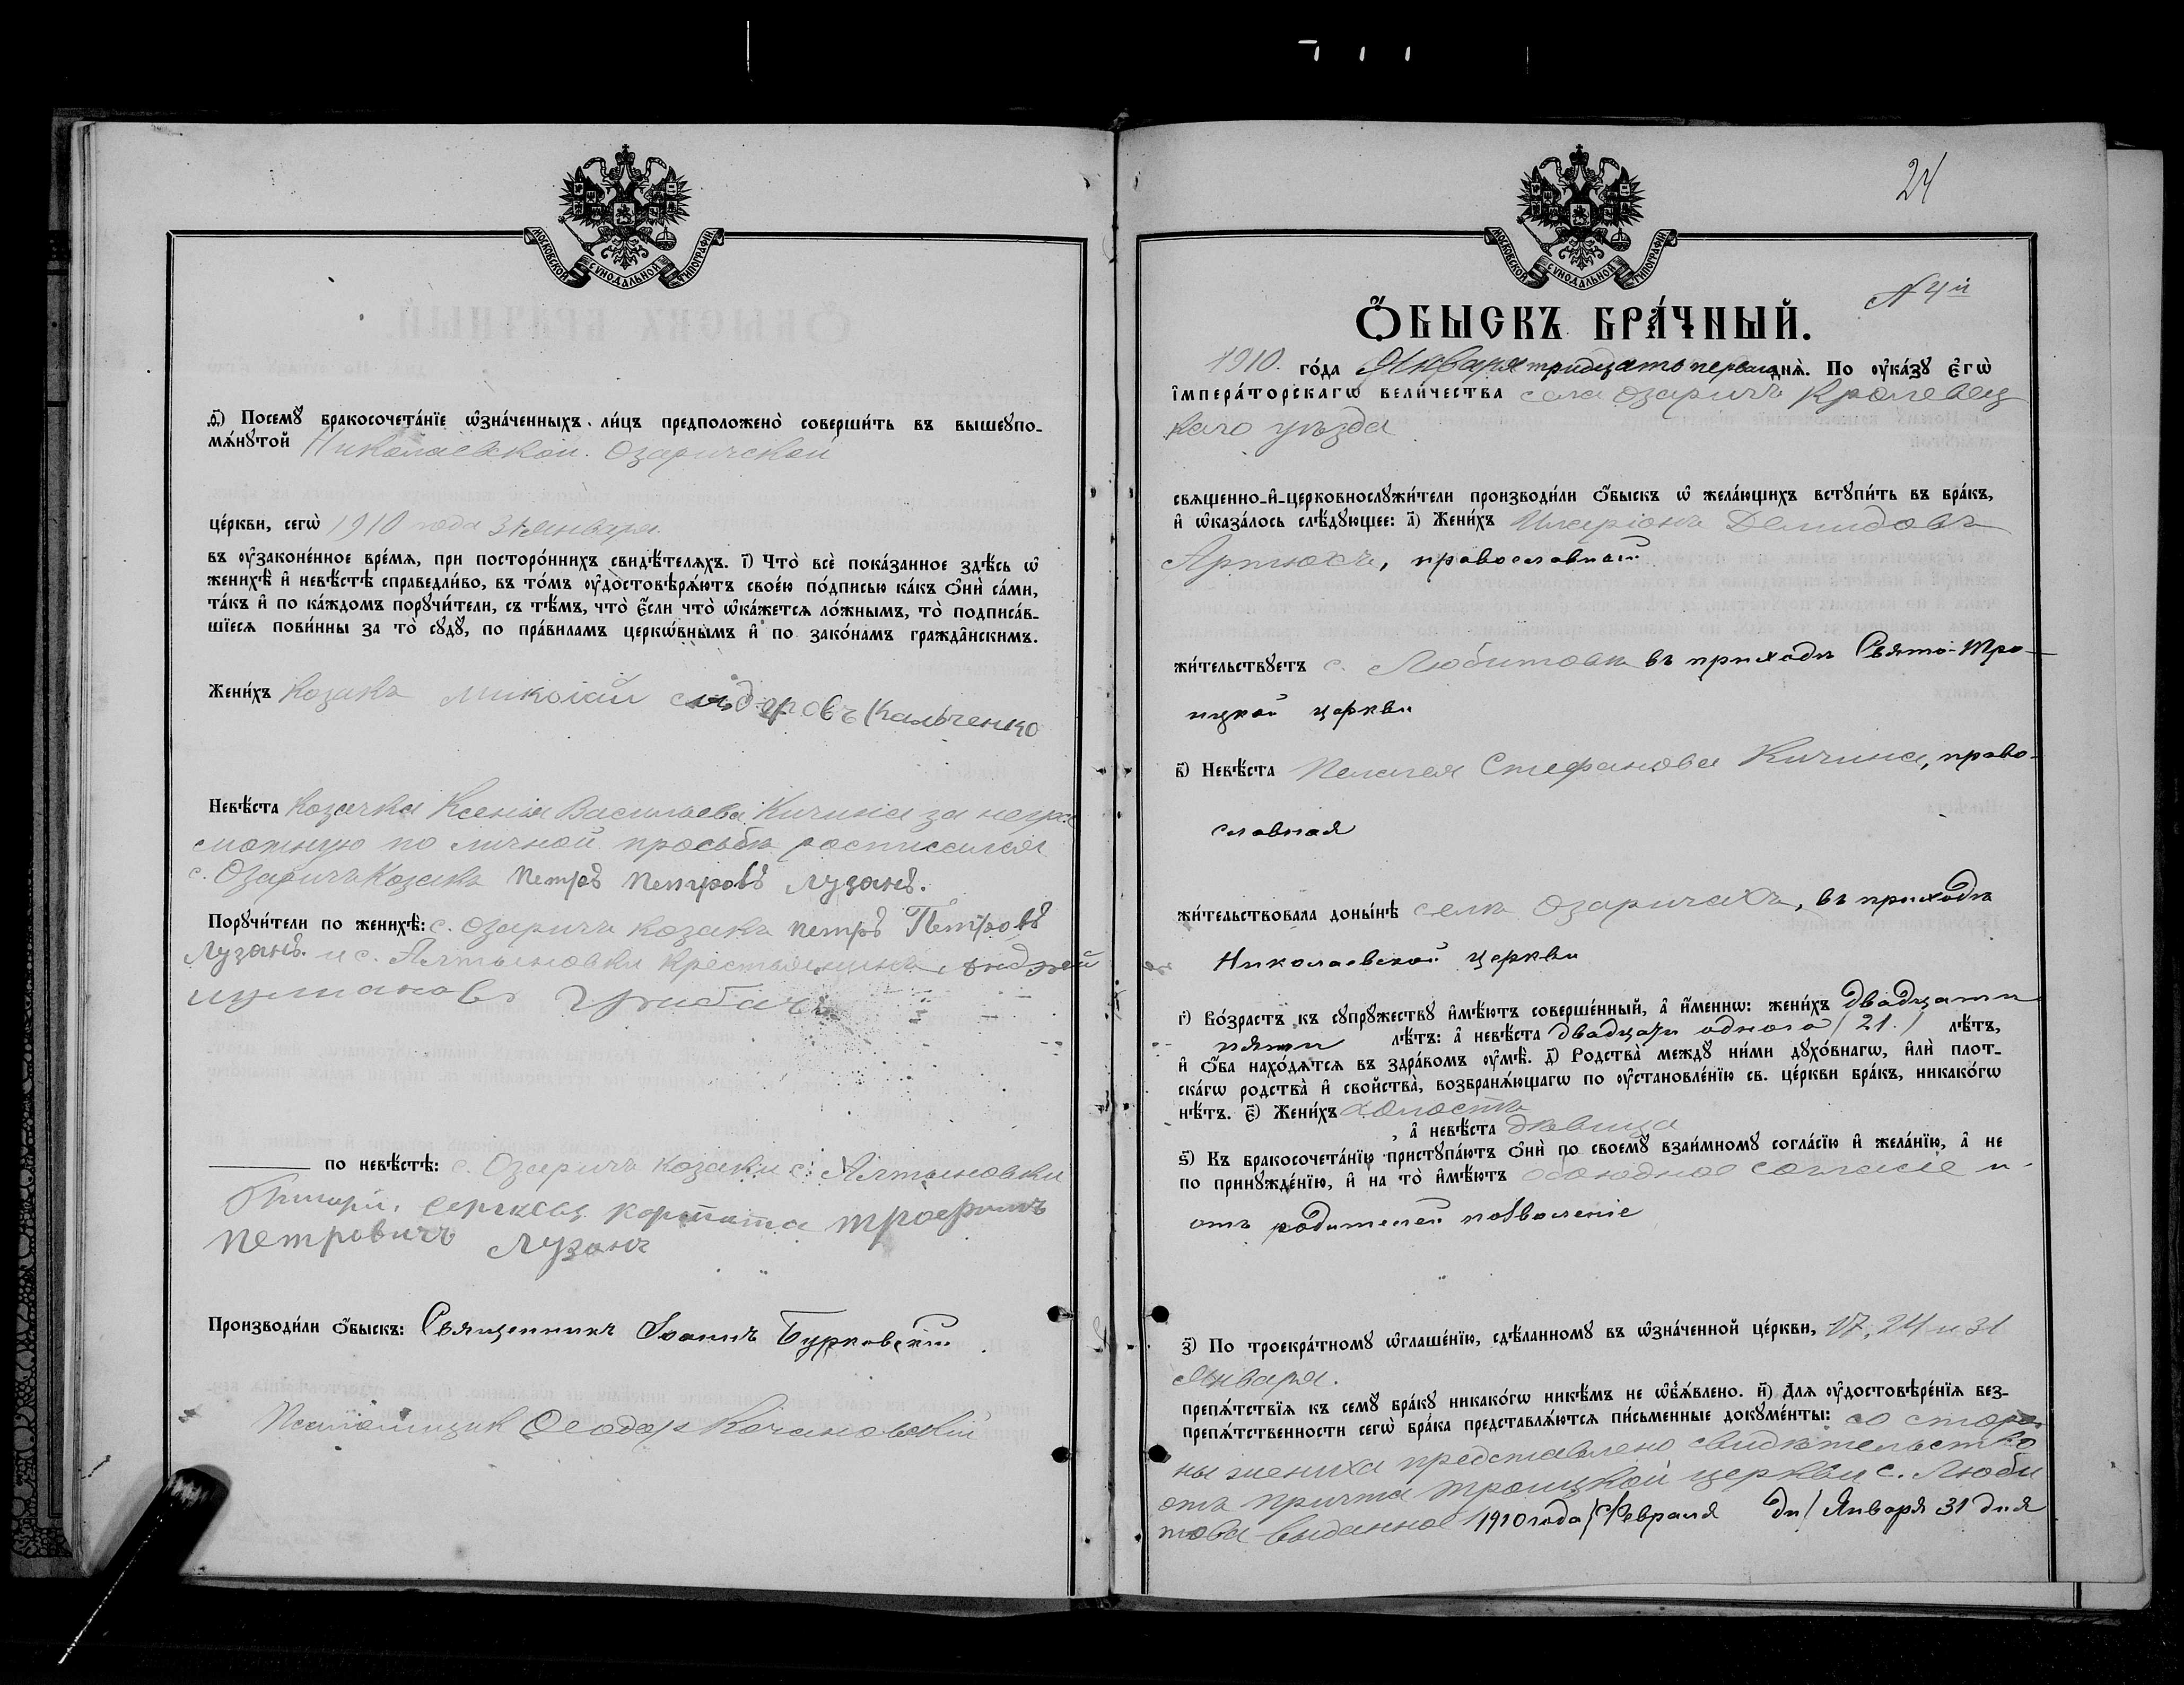 МОСКОВСКОЙ СѴНОДАЛЬНОЙ ТИПОГРАФІИ
ѳ҃) Посемꙋ̀ бракосочета́нїе ѡ҆зна́ченныхъ ли́цъ предположено̀ соверши́ть въ вышеꙋпо-
мѧ́нꙋтой Николаевской Озаричской
це́ркви, сегѡ̀ 1910 года 31 января
въ ᲂу҆законе́нное вре́мѧ, при посторо́ннихъ свидѣ́телѧхъ. і҃) Что̀ всѐ пока́занное здѣ́сь ѡ҆
женихѣ̀ и҆ невѣ́стѣ справедли́во, въ то́мъ ᲂу҆достовѣрѧ́ютъ свое́ю по́дписью ка́къ ѻ҆нѝ са́ми,
та́къ и҆ по ка́ждомъ порꙋчи́тели, съ тѣ́мъ, что̀ є҆́сли что̀ ѡ҆ка́жетсѧ ло́жнымъ, то̀ подписа́в-
шїесѧ пови́нны за то̀ сꙋдꙋ̀, по пра́виламъ церко́внымъ и҆ по зако́намъ гражда́нскимъ.
Жени́хъ Козакъ Миколай Сидоровъ Кальченко
Невѣ́ста Козачка Ксенія Васильева Кичина за негра
мотную по личной просьбѣ росписался
с. Озаричъ Козакъ Петръ Петровъ Лузанъ.
Порꙋчи́тели по женихѣ̀: с. Озаричъ козакъ Петръ Петровъ
Лузанъ. и с. Алтыновки крестьянинъ Андрей
Грибачъ
по невѣ́стѣ: с. Озаричъ козаки с. Алтыновки
Григорій Сергѣевъ Трофимъ
Петровичъ Лузанъ
Производи́ли ѻ҆́быскъ: Священникъ Іоаннъ Бурковскій
Псаломщик Ѳеодор Качановскій
24
МОСКОВСКОЙ СѴНОДАЛЬНОЙ ТИПОГРАФІИ
N 4й
Ѻ҆́БЫСКЪ БРА́ЧНЫЙ.
1910. го́да Января тридцать перваго днѧ̀. По ᲂу҆ка́зꙋ Є҆гѡ̀
І҆мпера́торскагѡ вели́чества села Озаричъ Кролевец
каго уѣзда
священно-и҆-церковнослꙋжи́тели производи́ли ѻ҆́быскъ ѡ҆ жела́ющихъ встꙋпи́ть въ бра́къ,
и҆ ѡ҆каза́лось слѣ́дꙋющее: а҃) Жени́хъ Иларіонъ Демидовъ
Артюхъ, православный
жи́тельствꙋетъ с. Любитовкѣ въ приходѣ Свято-Тро-
ицкой церкви
в҃) Невѣ́ста Пелагея Стефанова Кичина, право-
славная
жи́тельствовала доны́нѣ селѣ Озаричахъ, въ приходѣ
Николаевской церкви
г҃) Во́зрастъ къ сꙋпрꙋ́жествꙋ и҆мѣ́ютъ соверше́нный, а҆ и҆́меннѡ: жени́хъ двадцати
пяти лѣ́тъ: а҆ невѣ́ста двадцати одного / 21. / лѣ́тъ,
и҆ ѻ҆́ба нахо́дѧтсѧ въ здра́вомъ ᲂу҆мѣ̀. д҃) Родства̀ междꙋ̀ ни́ми дꙋхо́внагѡ, и҆лѝ плот-
ска́гѡ родства̀ и҆ сво́йства̀, возбранѧ́ющагѡ по ᲂу҆становле́нїю св. це́ркви бра́къ, никако́гѡ
нѣ́тъ. є҃) Жени́хъ холостъ
, а҆ невѣ́ста дѣвица
ѕ҃) Къ бракосочета́нїю пристꙋпа́ютъ ѻ҆нѝ по своемꙋ̀ взаи́мномꙋ согла́сїю и҆ жела́нїю, а҆ не
по принꙋжде́нїю, и҆ на то̀ и҆мѣ́ютъ обоюдное согласіе и
отъ родителей позволеніе
з҃) По троекра́тномꙋ ѡ҆глаше́нїю, сдѣ́ланномꙋ въ ѡ҆зна́ченной це́ркви, 17, 24 и 31
Января.
препѧ́тствїѧ къ семꙋ̀ бра́кꙋ никако́гѡ никѣ́мъ не ѡ҆б̾ѧ́влено. и҃) Длѧ ᲂу҆достовѣре́нїѧ без-
препѧ́тственности сегѡ̀ бра́ка представлѧ́ютсѧ пи́сьменные докꙋме́нты: со сторо-
ны жениха представлено свидѣтельство
отъ причта Троицкой церкви с. Люби
това выданное 1910 года / Февраля дн / Января 31 дня